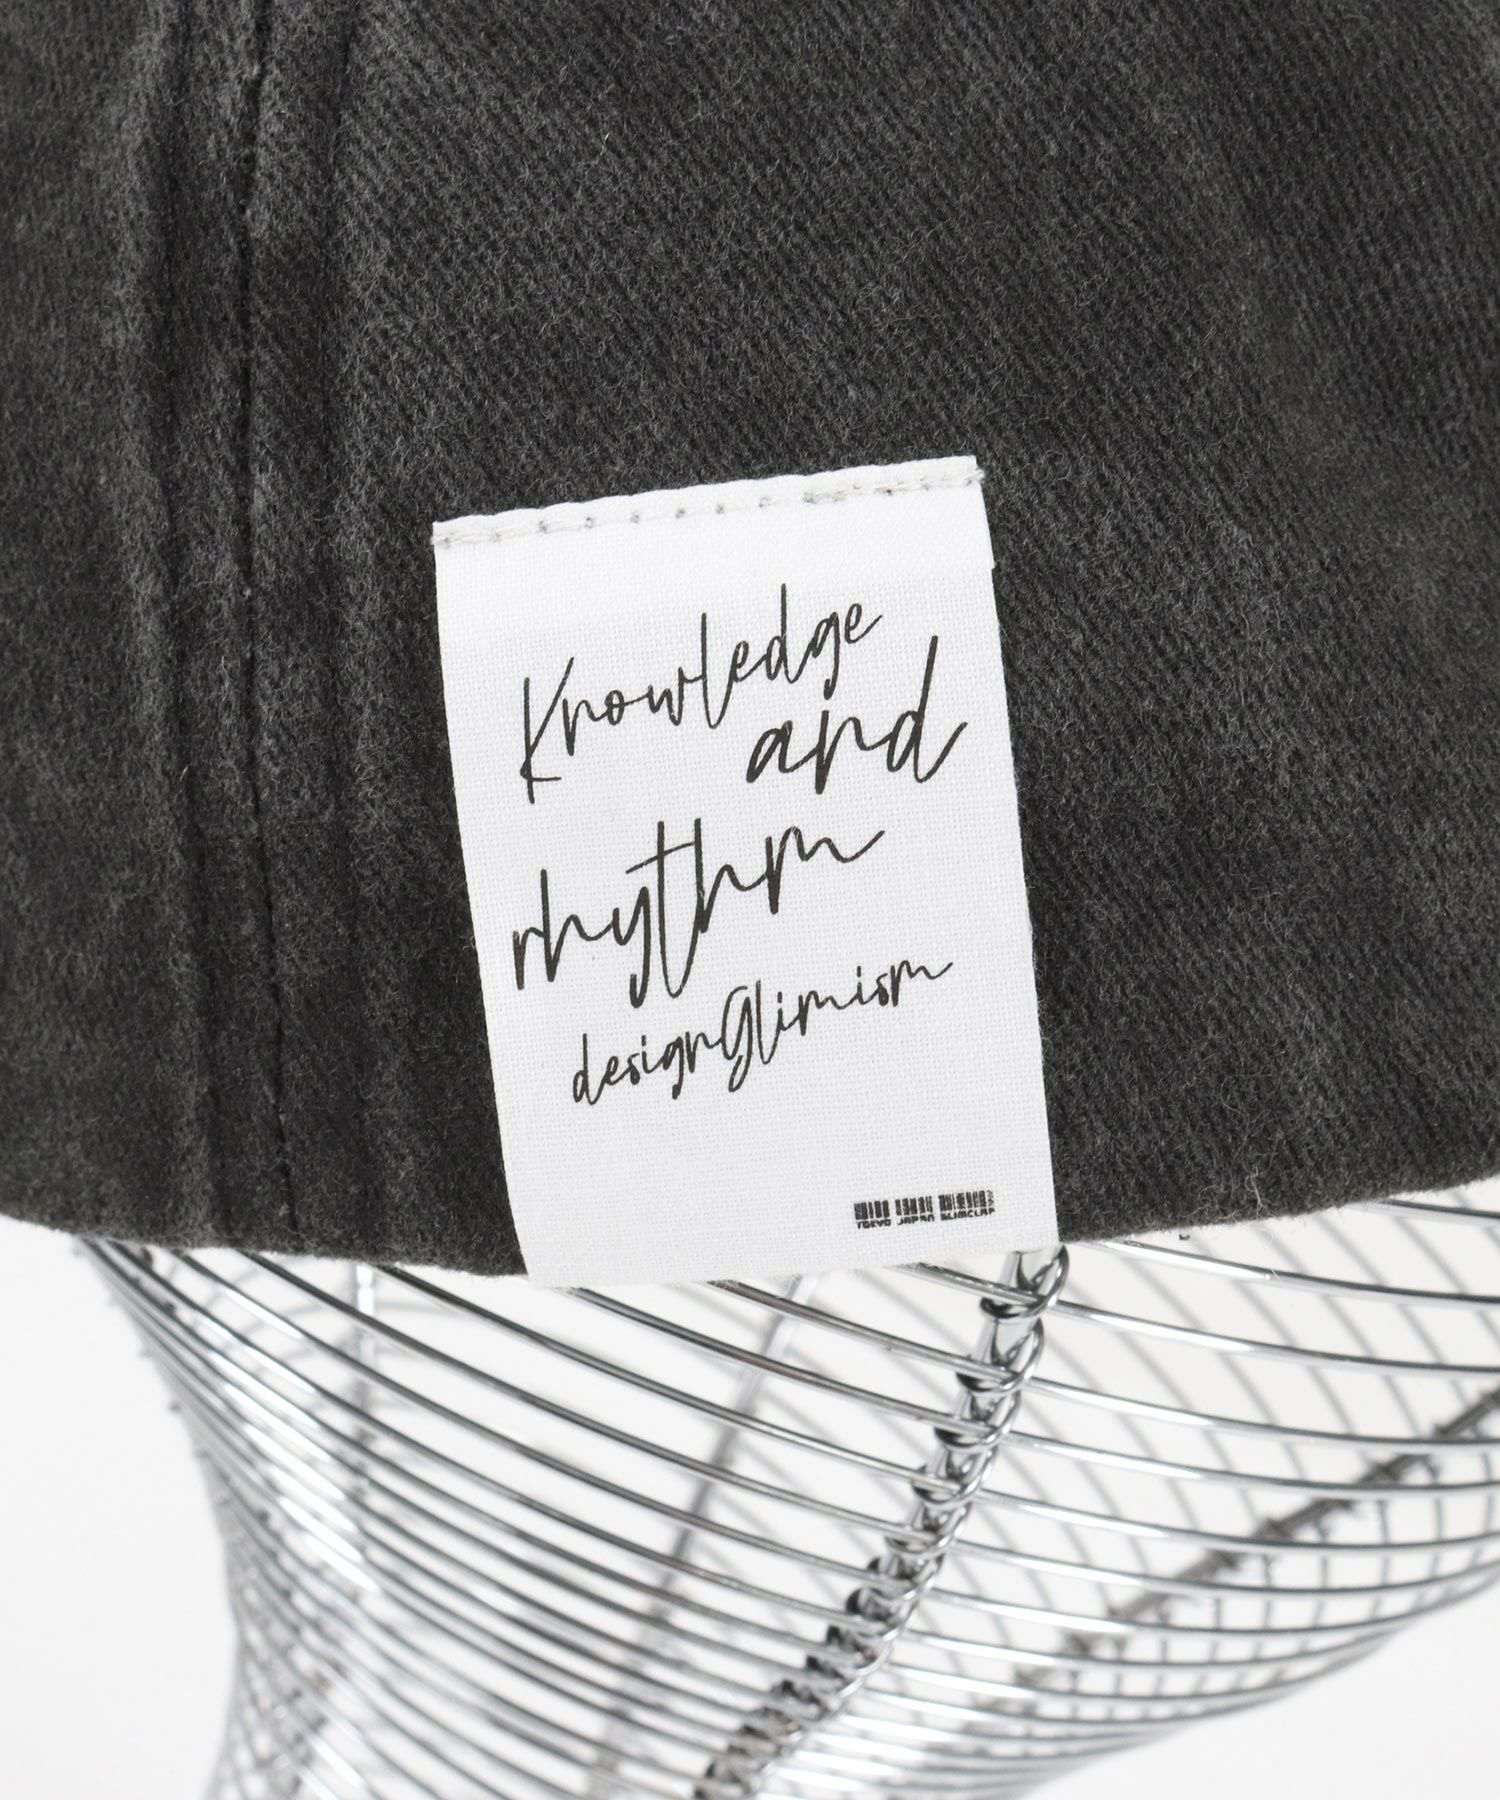 Knowledge
and
rhythm
designGlimism
TOKYO JAPAN GLIMCLAP